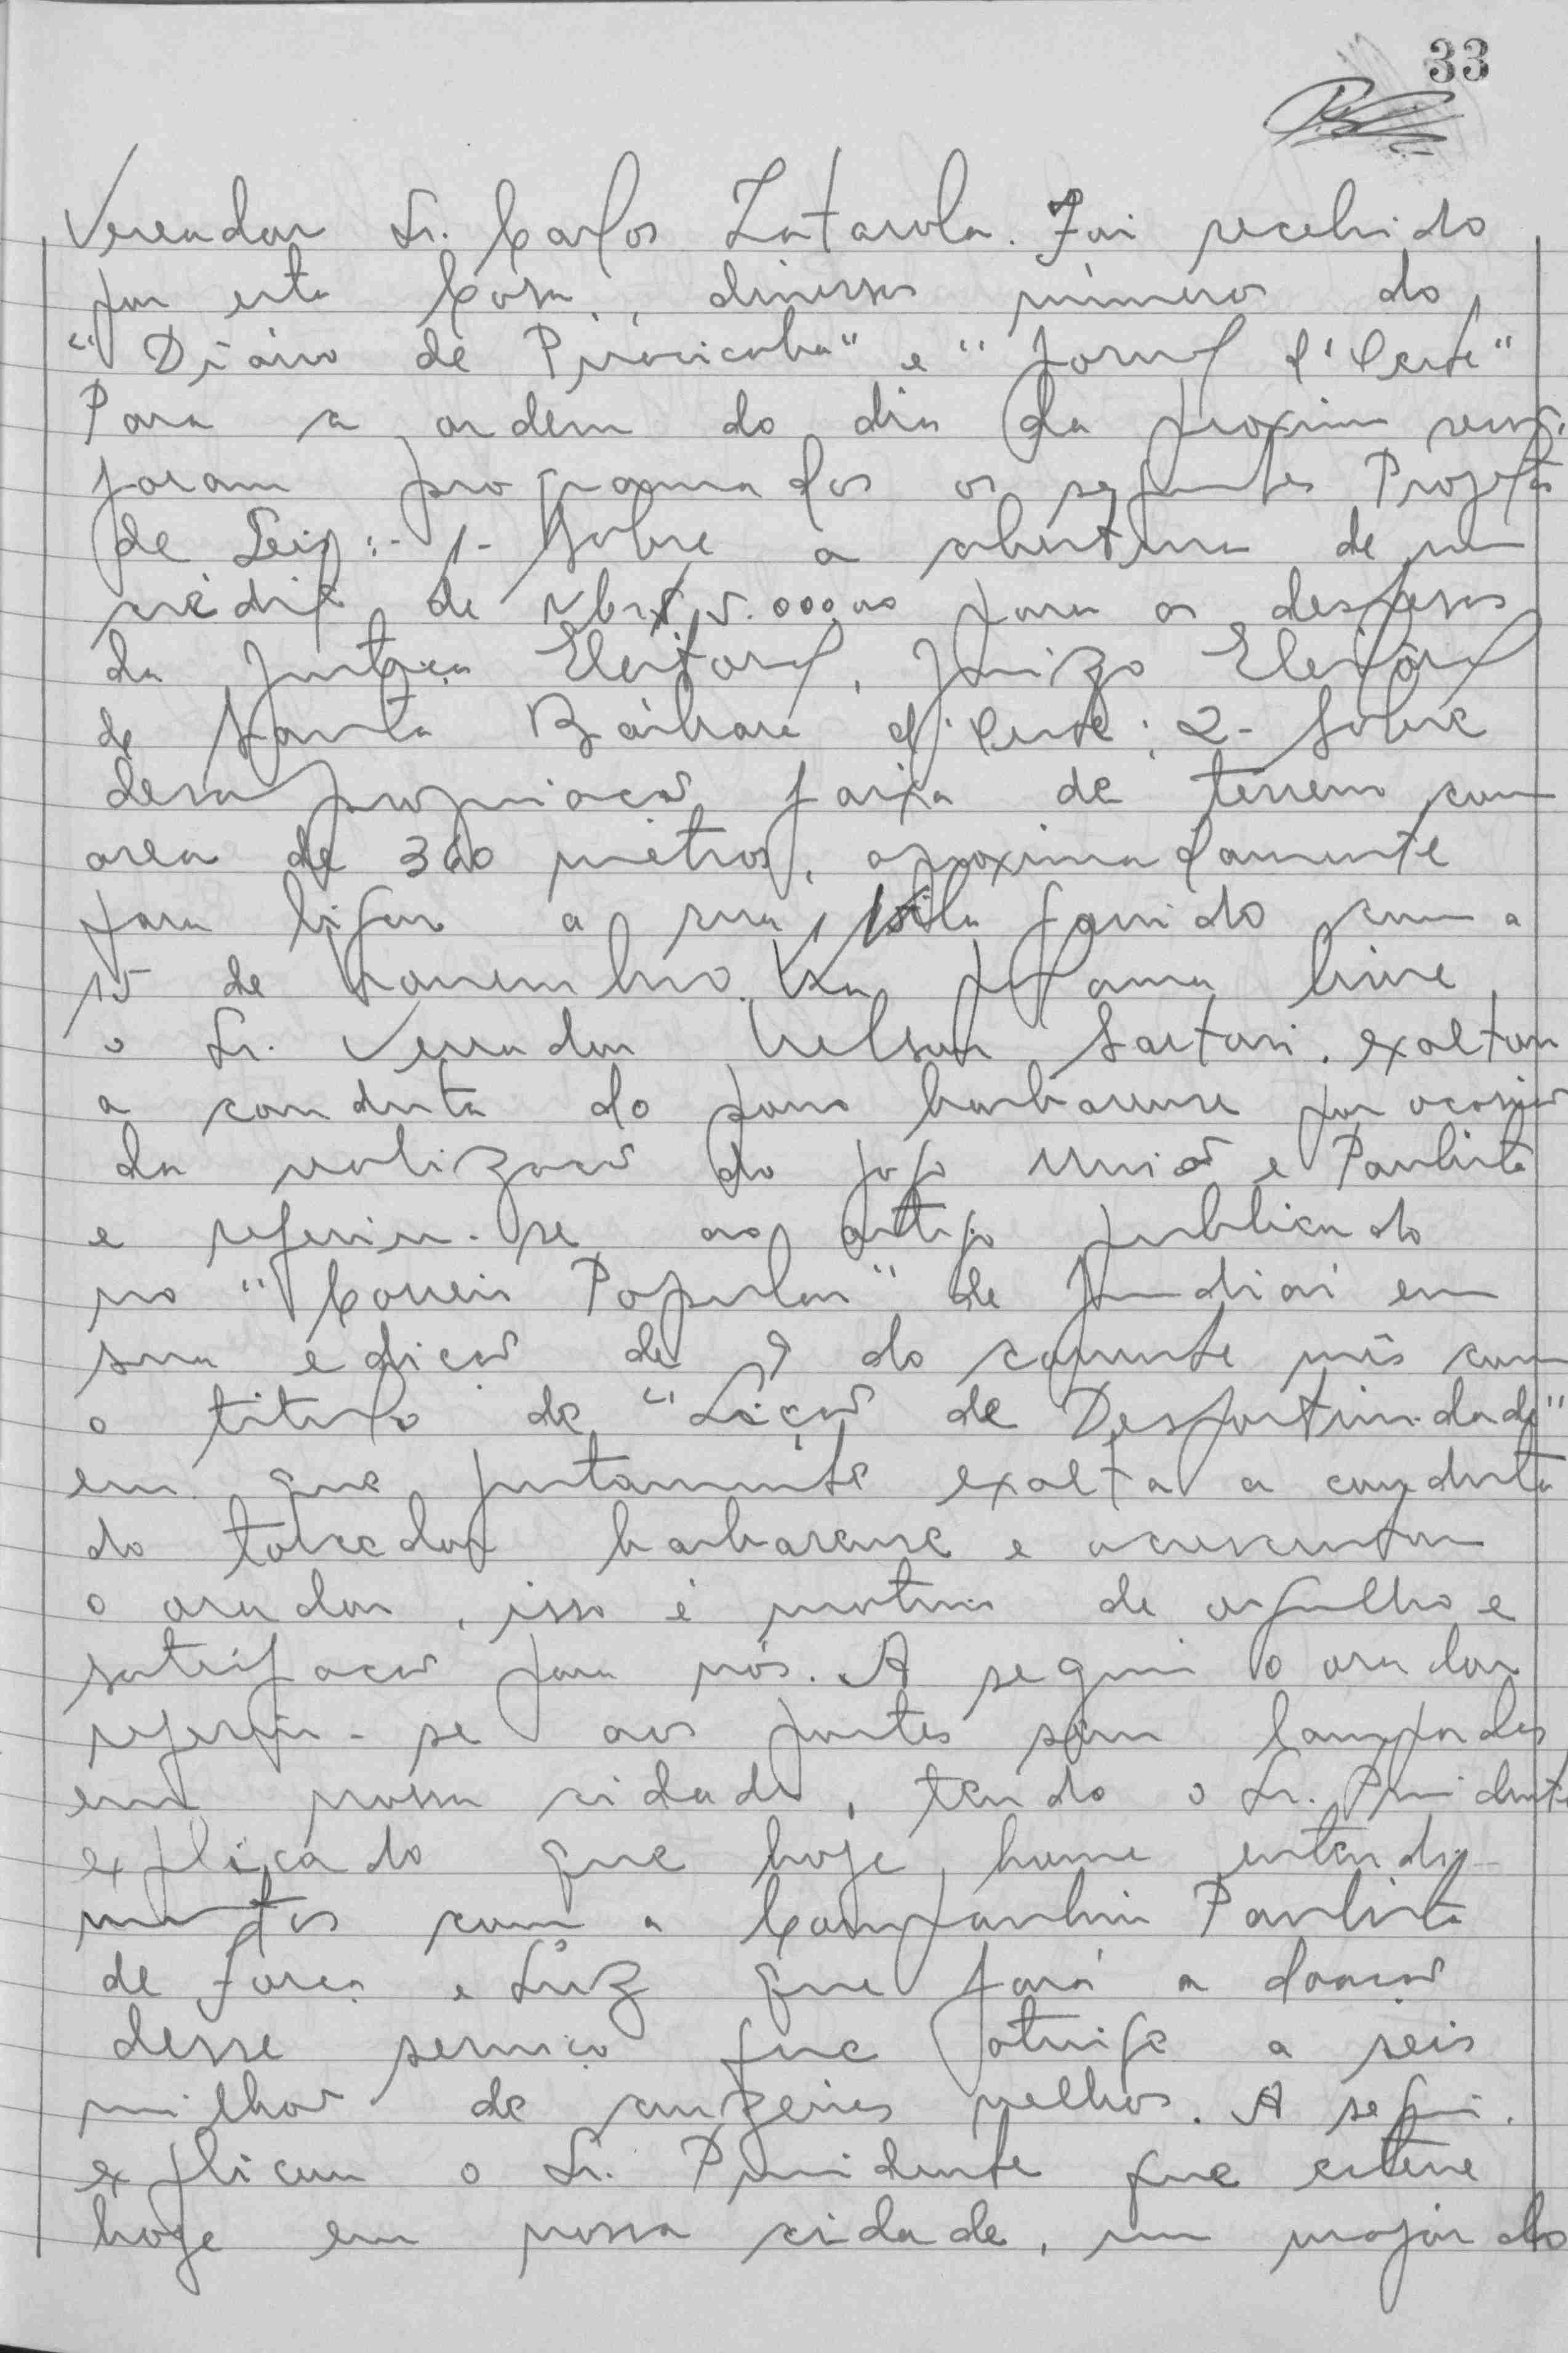 33
Vereador Sr. Carlos Zatarola. Foi recebido
por esta Casa, diversos números do
"Diário de Piracicaba" e "Jornal d'Oeste"
Para a ordem do dia da proxima sess.
foram programados os seguintes Projetos
de Leis:- 1- Sobre a abertura de um
crédito de 5.000,00 para as despesas
da Justiça Eleitoral, Juizo Eleitoral
de Santa Bárbara d'Oeste; 2- Sobre
desapropriação faixa de terreno com
area de 360 metros, aproximadamente
para ligar a rua Vila Garrido com a
15 de Novembro. Na palavra livre,
o Sr. Vereador Nelson Sartori. exaltou
a conduta do povo barbarense por ocasião
da realização do jogo União e Paulista
e referiu-se ao artigo publicado
no "Correio Popular" de Jundiai em
sua edição de 9 do corrente mês com
o titulo de "Lição de Desportividade"
em que justamente exalta a conduta
do torcedor barbarense e acrescentou
o orador, isso é motivo de orgulho e
satisfação para nós. A seguir o orador
referiu-se aos postes sem lampadas
em nossa cidade, tendo o Sr. Presidente
explicado que hoje houve entendi-
mentos com a Companhia Paulista
de Força e Luz que fará a doação
desse serviço que atinge a seis
milhões de cruzeiros velhos. A seguir.
explicou o Sr. Presidente que esteve
hoje em nossa cidade, um major do